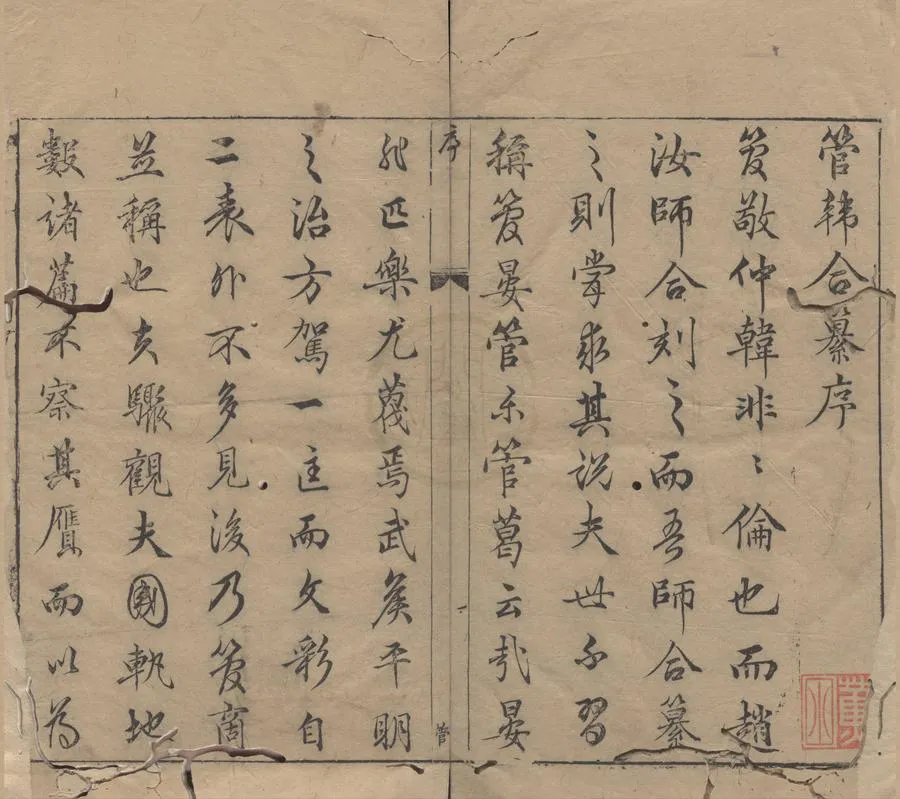 管韓合纂序
管敬仲韓非〻倫也而趙
汝師合刻之而吾師合纂
之則嘗求其說夫世所習
稱管晏管乐管葛云哉晏
序
管
非匹樂尤蔑焉武侯平明
之治方駕一匡而文彩自
二表外不多見後乃管商
並稱也夫驟觀夫國軌地
數諸篇不察其贗而以為